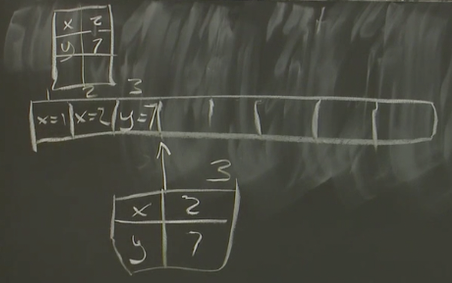 x 2
y 7
2 3
x=1 x=2 y=7
3
x 2
y 7